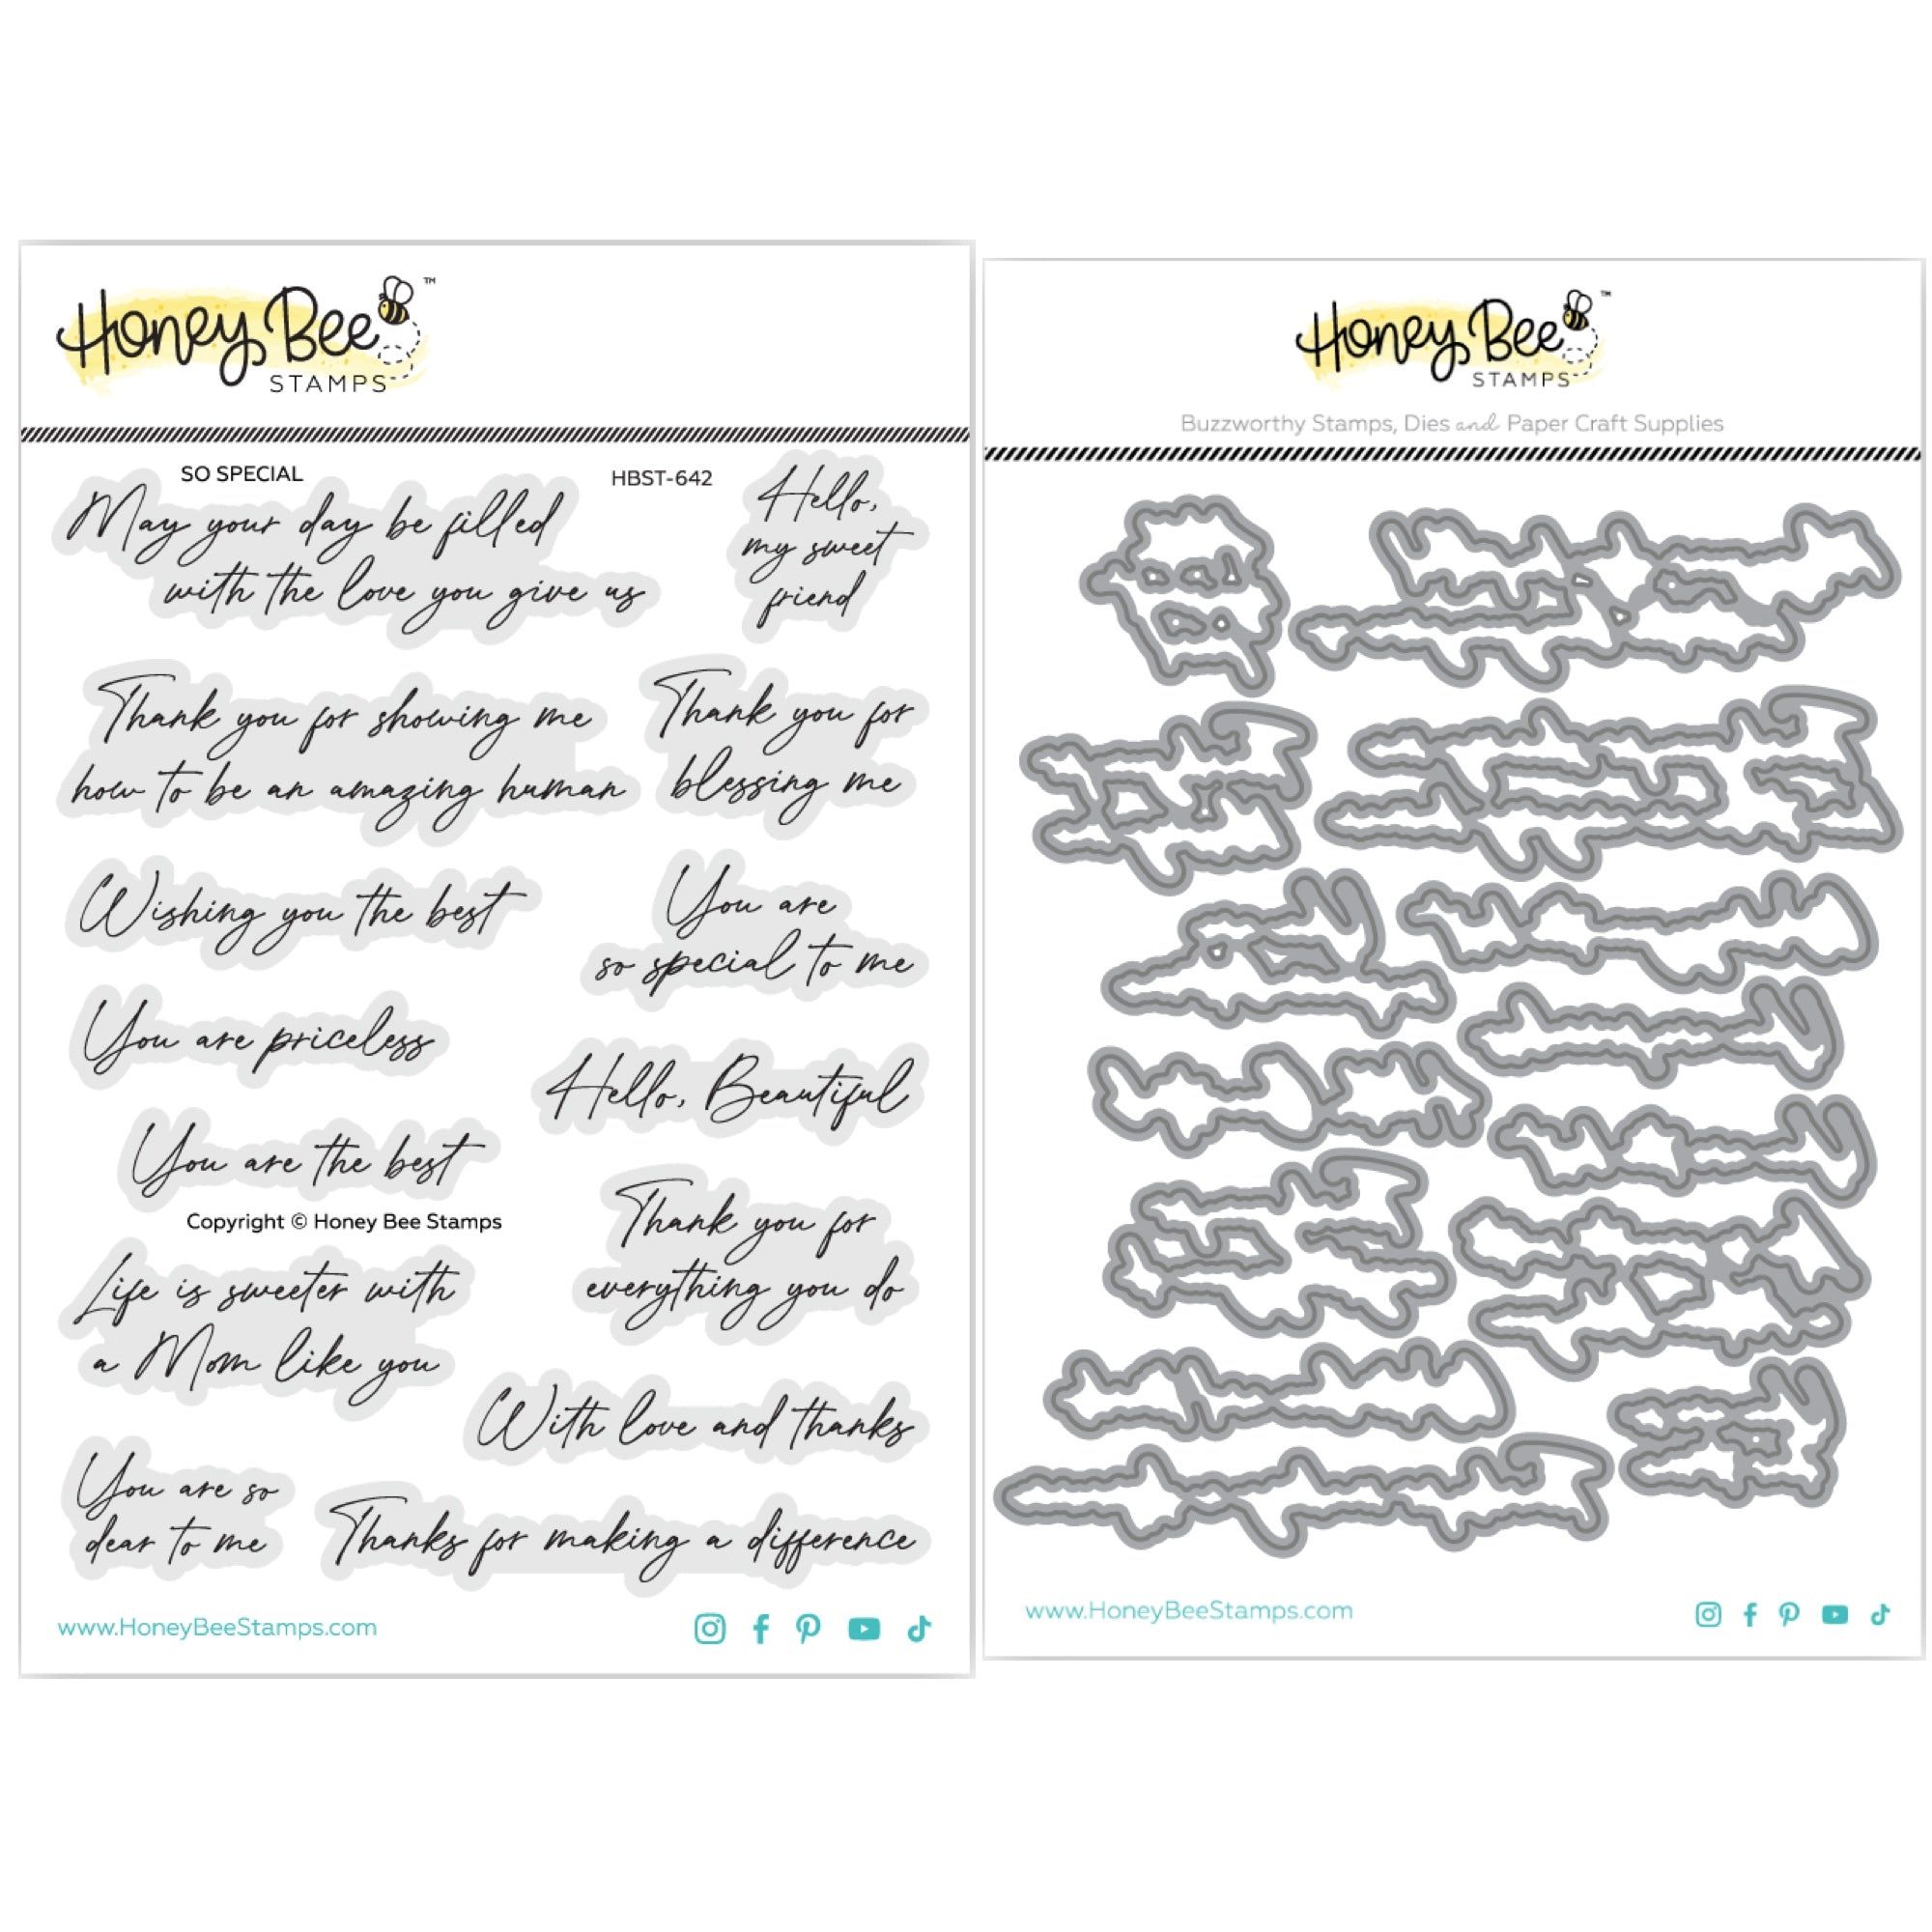 Honey Bee ™
STAMPS
SO SPECIAL
HBST-642
May your day be filled
with the love you give us
Hello,
my sweet
friend
Thank you for showing me
how to be an amazing human
Thank you for
blessing me
Wishing you the best
You are
so special to me
You are priceless
Hello, Beautiful
You are the best
Copyright © Honey Bee Stamps
Thank you for
everything you do
Life is sweeter with
a Mom like you
With love and thanks
You are so
dear to me
Thanks for making a difference
www.HoneyBeeStamps.com
Honey Bee ™
STAMPS
Buzzworthy Stamps, Dies and Paper Craft Supplies
www.HoneyBeeStamps.com